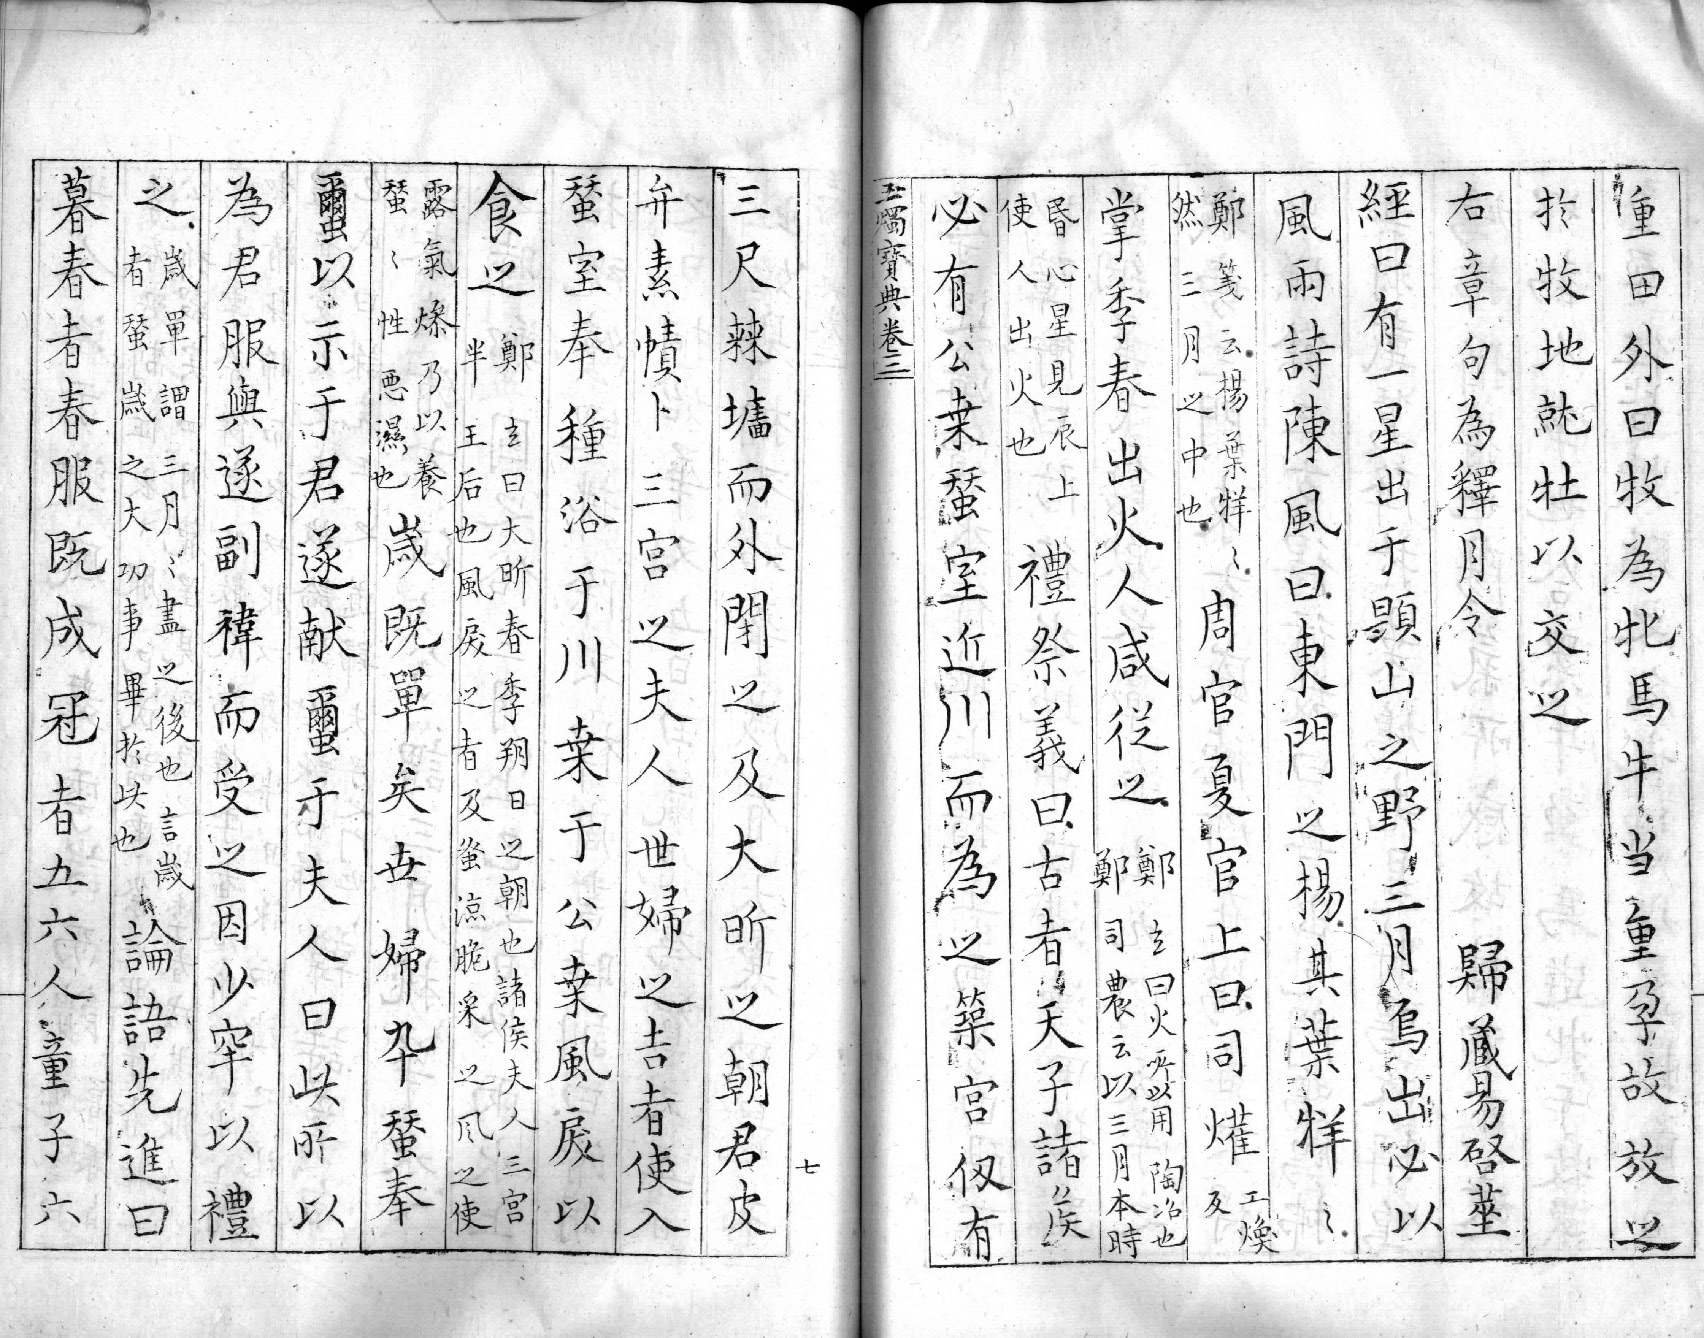 重田外曰牧為牝馬牛当重孕故放之
扵牧地就牡以交之
右章句為釋月令　歸藏易啓筮
經曰有一星出于顕山之野三月烏出必以
風雨詩陳風曰東門之楊其葉牂〻
鄭箋云楊葉牂〻
然三月之中也
周官夏官上曰司爟
工煥
反
掌季春出火人咸従之
鄭玄曰火所以用陶冶也
鄭司農云以三月本時
昏心星見辰上
使人出火也
禮祭義曰古者天子諸侯
必有公桒蝅室近川而為之築宮仭有
玉燭寶典卷三
三尺棘墻而外閉之及大昕之朝君皮
弁素幘卜三宮之夫人世婦之吉者使入
蝅室奉種浴于川桒于公桒風戾以
食之
鄭玄曰大昕春季朔日之朝也諸侯夫人三宮
半王后也風戾之者及蚤涼脆采之风之使
露氣燥乃以養
蝅〻性悪濕也
歳既單矣世婦卒蝅奉
蠒以示于君遂献蠒于夫人曰此所以
為君服與遂副褘而受之因少牢以禮
之
歳單謂三月〻盡之後也言歳
者蝅歳之大功事畢扵此也
論語先進曰
暮春者春服既成冠者五六人童子六
七